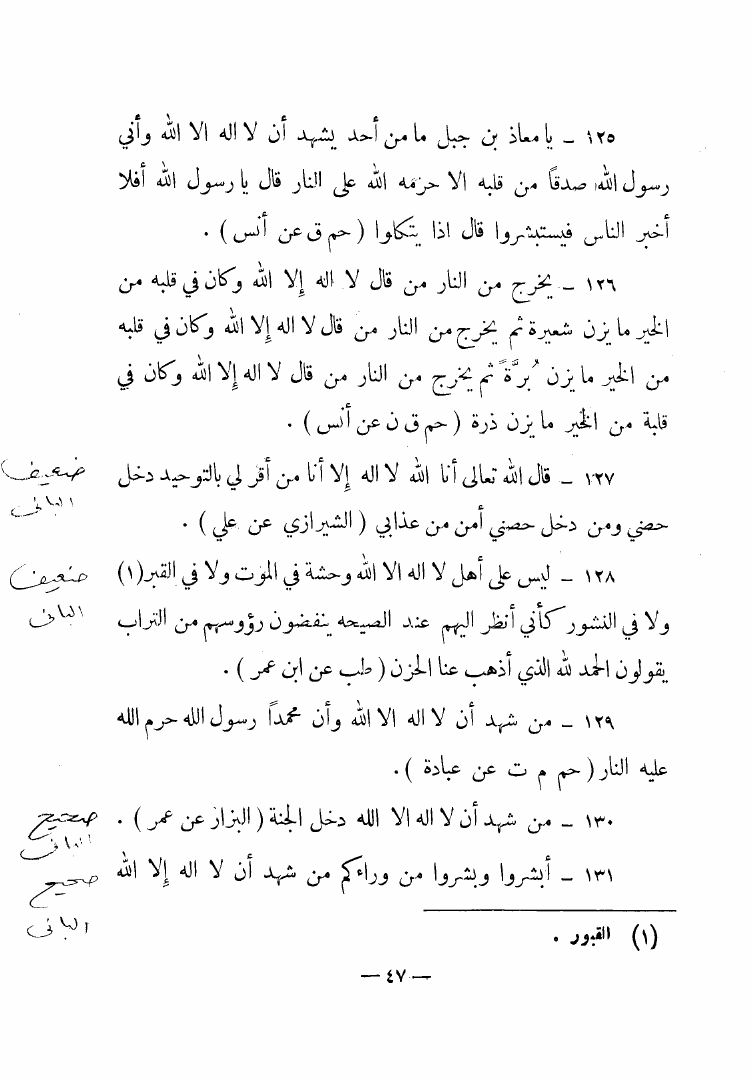 ١٢٥ – يا معاذ بن جبل ما من أحد يشهد أن لا اله الا الله وأني
رسول الله صدقاً من قلبه الا حرمه الله على النار قال يا رسول الله أفلا
أخبر الناس فيستبشروا قال اذا يتكلوا ( حم ق عن أنس ) .
١٢٦ – يخرج من النار من قال لا اله إلا الله وكان في قلبه من
الخير ما يزن شعيرة ثم يخرج من النار من قال لا اله إلا الله وكان في قلبه
من الخير ما يزن بُرَّةً ثم يخرج من النار من قال لا اله إلا الله وكان في
قلبة من الخير ما يزن ذرة ( حم ق ن عن أنس ) .
١٢٧ – قال الله تعالى أنا الله لا اله إلا أنا من أقر لي بالتوحيد دخل
حصني ومن دخل حصني أمن من عذابي ( الشيرازي عن علي ) .
ضعيف
البانى
١٢٨ – ليس على أهل لا اله الا الله وحشة في الموت ولا في القبر(١)
ولا في النشور كأني أنظر اليهم عند الصيحه ينفضون رؤوسهم من التراب
يقولون الحمد لله الذي أذهب عنا الحزن ( طب عن ابن عمر ) .
ضعيف
البانى
١٢٩ – من شهد أن لا اله الا الله وأن محمداً رسول الله حرم الله
عليه النار ( حم م ت عن عبادة ) .
١٣٠ – من شهد أن لا اله الا الله دخل الجنة ( البزار عن عمر ) .
صحيح
البانى
١٣١ – أبشروا وبشروا من وراءكم من شهد أن لا اله إلا الله
صحيح
البانى
(١) القبور .
– ٤٧ –